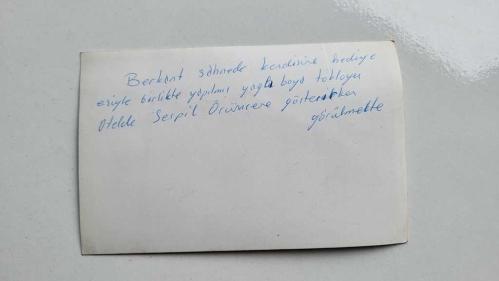 Berkant sahnede kendisine hediye
eşiyle birlikte yapılmış yağlı boya tabloyu
otelde Serpil Örümcere gösterirken
görülmekte